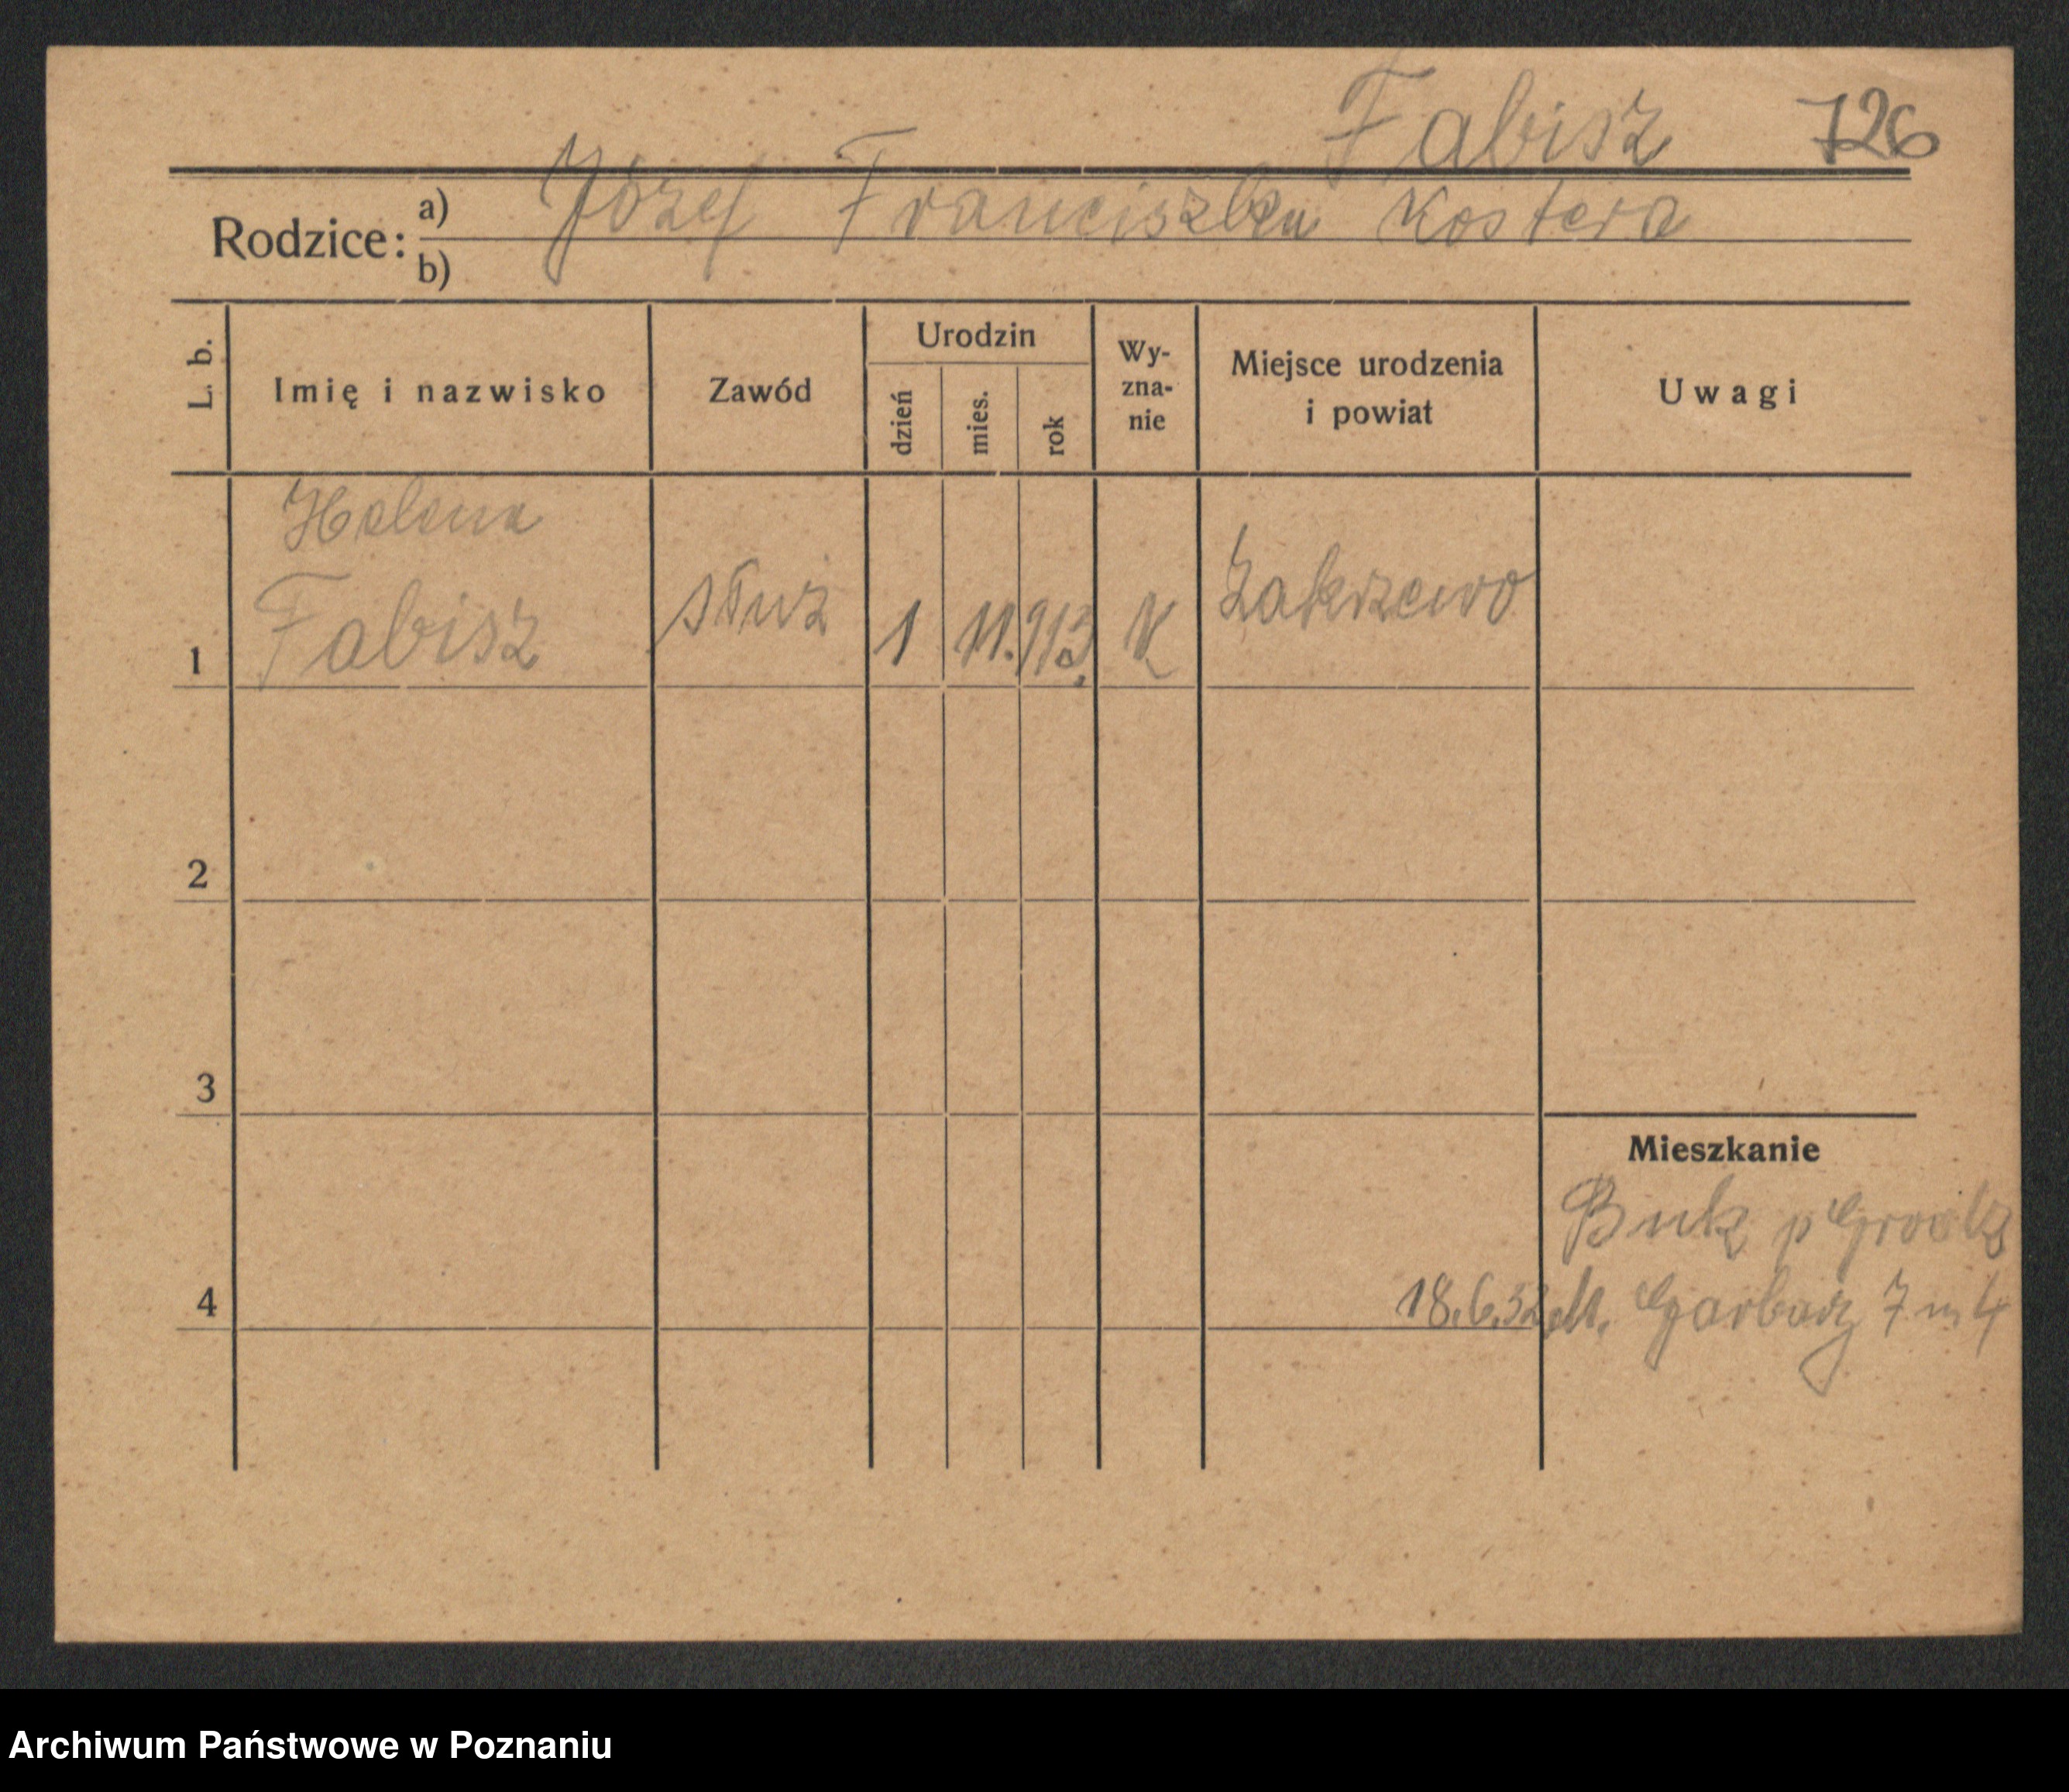 Fabisz 726
Rodzice: a) Józef Franciszka Kostera
b)
L. b.
Imię i nazwisko
Zawód
Urodzin
dzień
mies.
rok
Wy-
zna-
nie
Miejsce urodzenia
i powiat
Uwagi
Helena
1 Fabisz służ 1 11. 913. K Zakrzewo
2
3
Mieszkanie
Buk p
4 18.6.32 M. Garbary 7 m 4
Archiwum Państwowe w Poznaniu